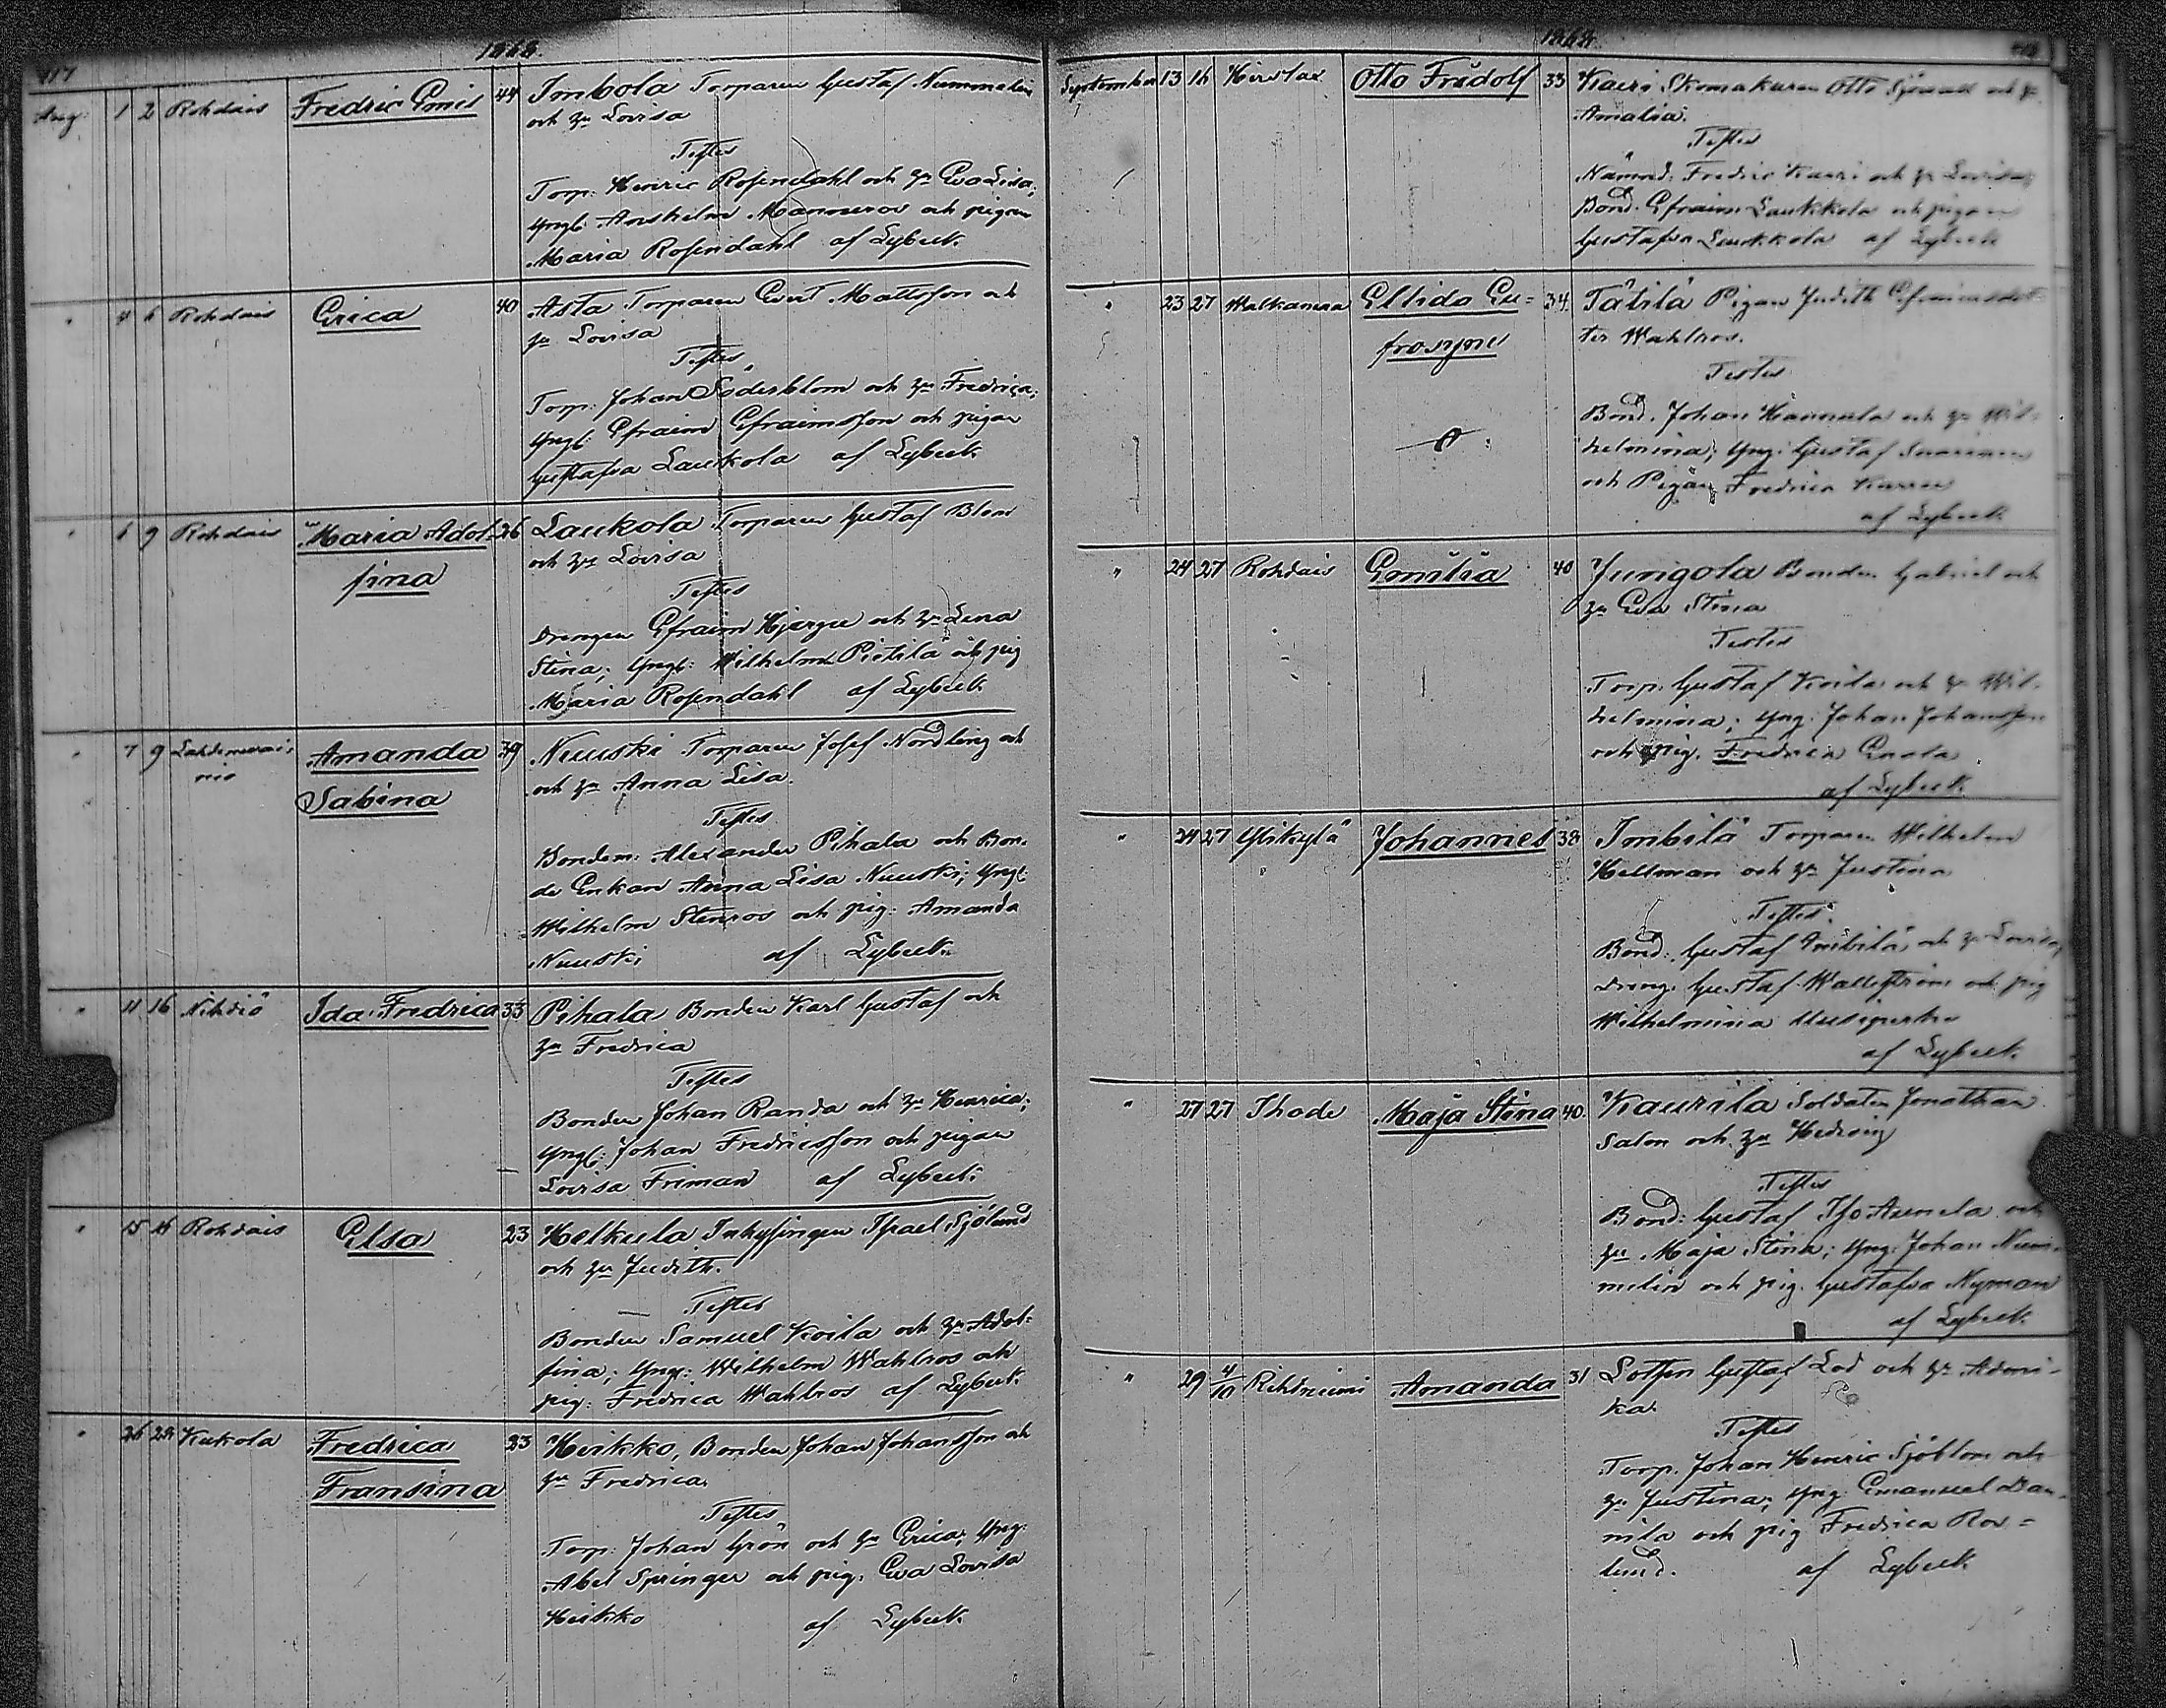 417
1868.
Aug. 1 2 Rohdais Fredric Emil 44 Imbola Torparen Gustaf Nummelin
och hu Lovisa
Testes
Torp: Henric Rosendahl och hu Eva Lisa;
yngl: Anshelm Mannerov och pigan
Maria Rosendahl af Lybeck.
" 4 6 Rohdais Erica 40 Asta Torparen Evert Mattsson och
hu Lovisa
Testes
Torp: Johan Söderblom och hu Fredrica;
yngl: Efraim Efraimsson och pigan
Gustafva Laukola af Lybeck.
" 6 9 Rohdais Maria Adol= 26 Laukola Torparen Gustaf Blom
fina och hu Lovisa
Testes
Drengen Efraim Hjerpe och hu Lena
Stina; yngl: Wilhelm Pietilä och pig
Maria Rosendahl af Lybeck
" 7 9 Amanda 39 Nuuski Torparen Josef Nordling och
Sabina och hu Anna Lisa.
Testes
Bonden: Alexander Pihala och Bon-
de Enkan Anna Lisa Nuuski; yngl:
Wilhelm Stenros och pig: Amanda
Nuuski af Lybeck.
" 11 16 Nihdiö Ida Fredrica 33 Pihala Bonden Karl Gustaf och
hu Fredrica
Testes
Bonden Johan Randa och hu Henrica;
yngl: Johan Fredricsson och pigan
Lovisa Friman af Lybeck.
" 15 16 Rohdais Elsa 23 Helkula Inhysingen Israel Sjölund
och hu Judith.
Testes
Bonden Samuel Koila och hu Adol=
fina; yngl: Wilhelm Wahlros och
pig: Fredrica Wahlros af Lybeck.
" 26 28 Kukola Fredrica 23 Heikko, Bonden Johan Johansson och
Fransina hu Fredrica.
Testes
Torp: Johan Grön och hu Erica; yng:
Abel Springer och pig: Eva Lovisa
Heikko af Lybeck.
1868.
September 13 16 Otto Fridolf 33 Kaeri Skomakaren Otto och hu
Amalia.
Testes
Nämnd: Fredric Kaeri och hu Lovisa;
Bond. Efraim Laukkola och pigan
Gustafva Laukkola af Lybeck
" 23 27 Eltida Eu= 34. Tätilä Pigan Judith Efraimsdot=
frosyne ter Wahlros.
Testes
Bond. Johan Hannula och hu Wil-
helmina; yng: Gustaf
och Pigan Fredrica
af Lybeck.
" 24 27 Rohdais Emilia 40 Junigola Bonden Gabriel och
hu Eva Stina
Testes
Torp. Gustaf Koila och hu Wil-
helmina; yng: Johan Johansson
och pig. Fredrica
af Lybeck
" 24 27 Ylikylä Johannes 38 Imbilä Torparen Wilhelm
Hellman och hu Justina
Testes
Bond: Gustaf Imbilä och hu Lovisa,
Dreng. Gustaf Wallström och pig
Wilhelmina
af Lybeck.
" 27 27 Ihode Maja Stina 40. Kaurila Soldaten Jonathan
Salon och hu Hedvig
Testes
Bond: Gustaf Iso Aunela och
hu Maja Stina; yng: Johan Num-
melin och pig. Gustafva Nyman
af Lybeck.
" 29 4/10 Rihtniemi Amanda 31 Lotsen Gustaf Lod och hu Admi-
ka.
Testes
Torp. Johan Henric Sjöblom och
hu Justina; yng: Emanuel Dan-
nila och pig Fredrica Ros=
lund. af Lybeck.